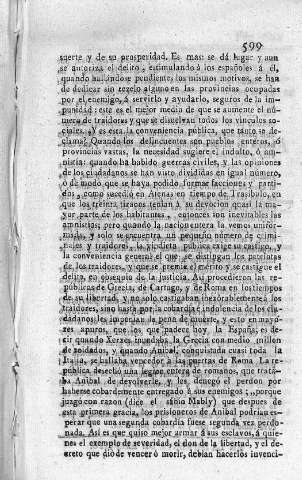 599
suerte y de su prosperidad. Es mas: se dá lugar y aun
se autoriza el delito, estimulando á los españoles á él,
quando hallandose pendiente los mismos motivos, se han
de dedicar sin rezelo alguno en las provincias ocupadas
por el enemigo, á servirlo y ayudarlo, seguros de la im-
punidad: este es el mejor medio de que se aumente el nú-
mero de traidores y que se disuelvan todos los vínculos so-
ciales. ¿Y es esta la conveniencia pública, que tanto se de-
clama? Quando los delincuentes son pueblos enteros, ó
provincias vastas, la necesidad sugiere el indulto, ó am-
nistia: quando ha habido guerras civiles, y las opiniones
de los ciudadanos se han visto divididas en igual número,
ó de modo que se haya podido formar facciones y parti-
dos, como sucedió en Atenas en tiempo de Trasibulo, en
que los treinta tiranos tenian á su devocion quasi la ma-
yor parte de los habitantes, entonces son inevitables las
amnistias; pero quando la nacion entera la vemos unifor-
mada, y solo se encuentra un pequeño número de crimi-
nales y traidores, la vindicta pública exige su castigo, y
la conveniencia general el que se distingan los patriotas
de los traidores, y que se premie el mérito y se castigue el
delito, en obsequio de la justicia. Asi procedieron las re-
públicas de Grecia, de Cartago, y de Roma en los tiempos
de su libertad, y no solo castigaban inexôrablemente á los
traidores, sino hasta por la cobardia é indolencia de los ciu-
dadanos les imponian la pena de muerte, y esto en mayo-
res apuros, que los que padece hoy la España; es de-
cir quando Xerxes inundaba la Grecia con medio millon
de soldados, y quando Anibal conquistada cuasi toda la
Italia, se hallaba vencedor á las puertas de Roma. La re-
pública desechó una legion entera de romanos, que trata-
ba Anibal de devolverle, y les denegó el perdon por
haberse cobardemente entregado á sus enemigos; "porque
juzgó con razon (dice el sabio Mably) que despues de
esta primera gracia, los prisioneros de Anibal podrian es-
perar que una segunda cobardia fuese segunda vez perdo-
nada. Asi es que quiso mejor armar á sus esclavos, á quie-
nes el exemplo de severidad, el don de la libertad, y el de-
creto que dió de vencer ó morir, debian hacerlos invenci-